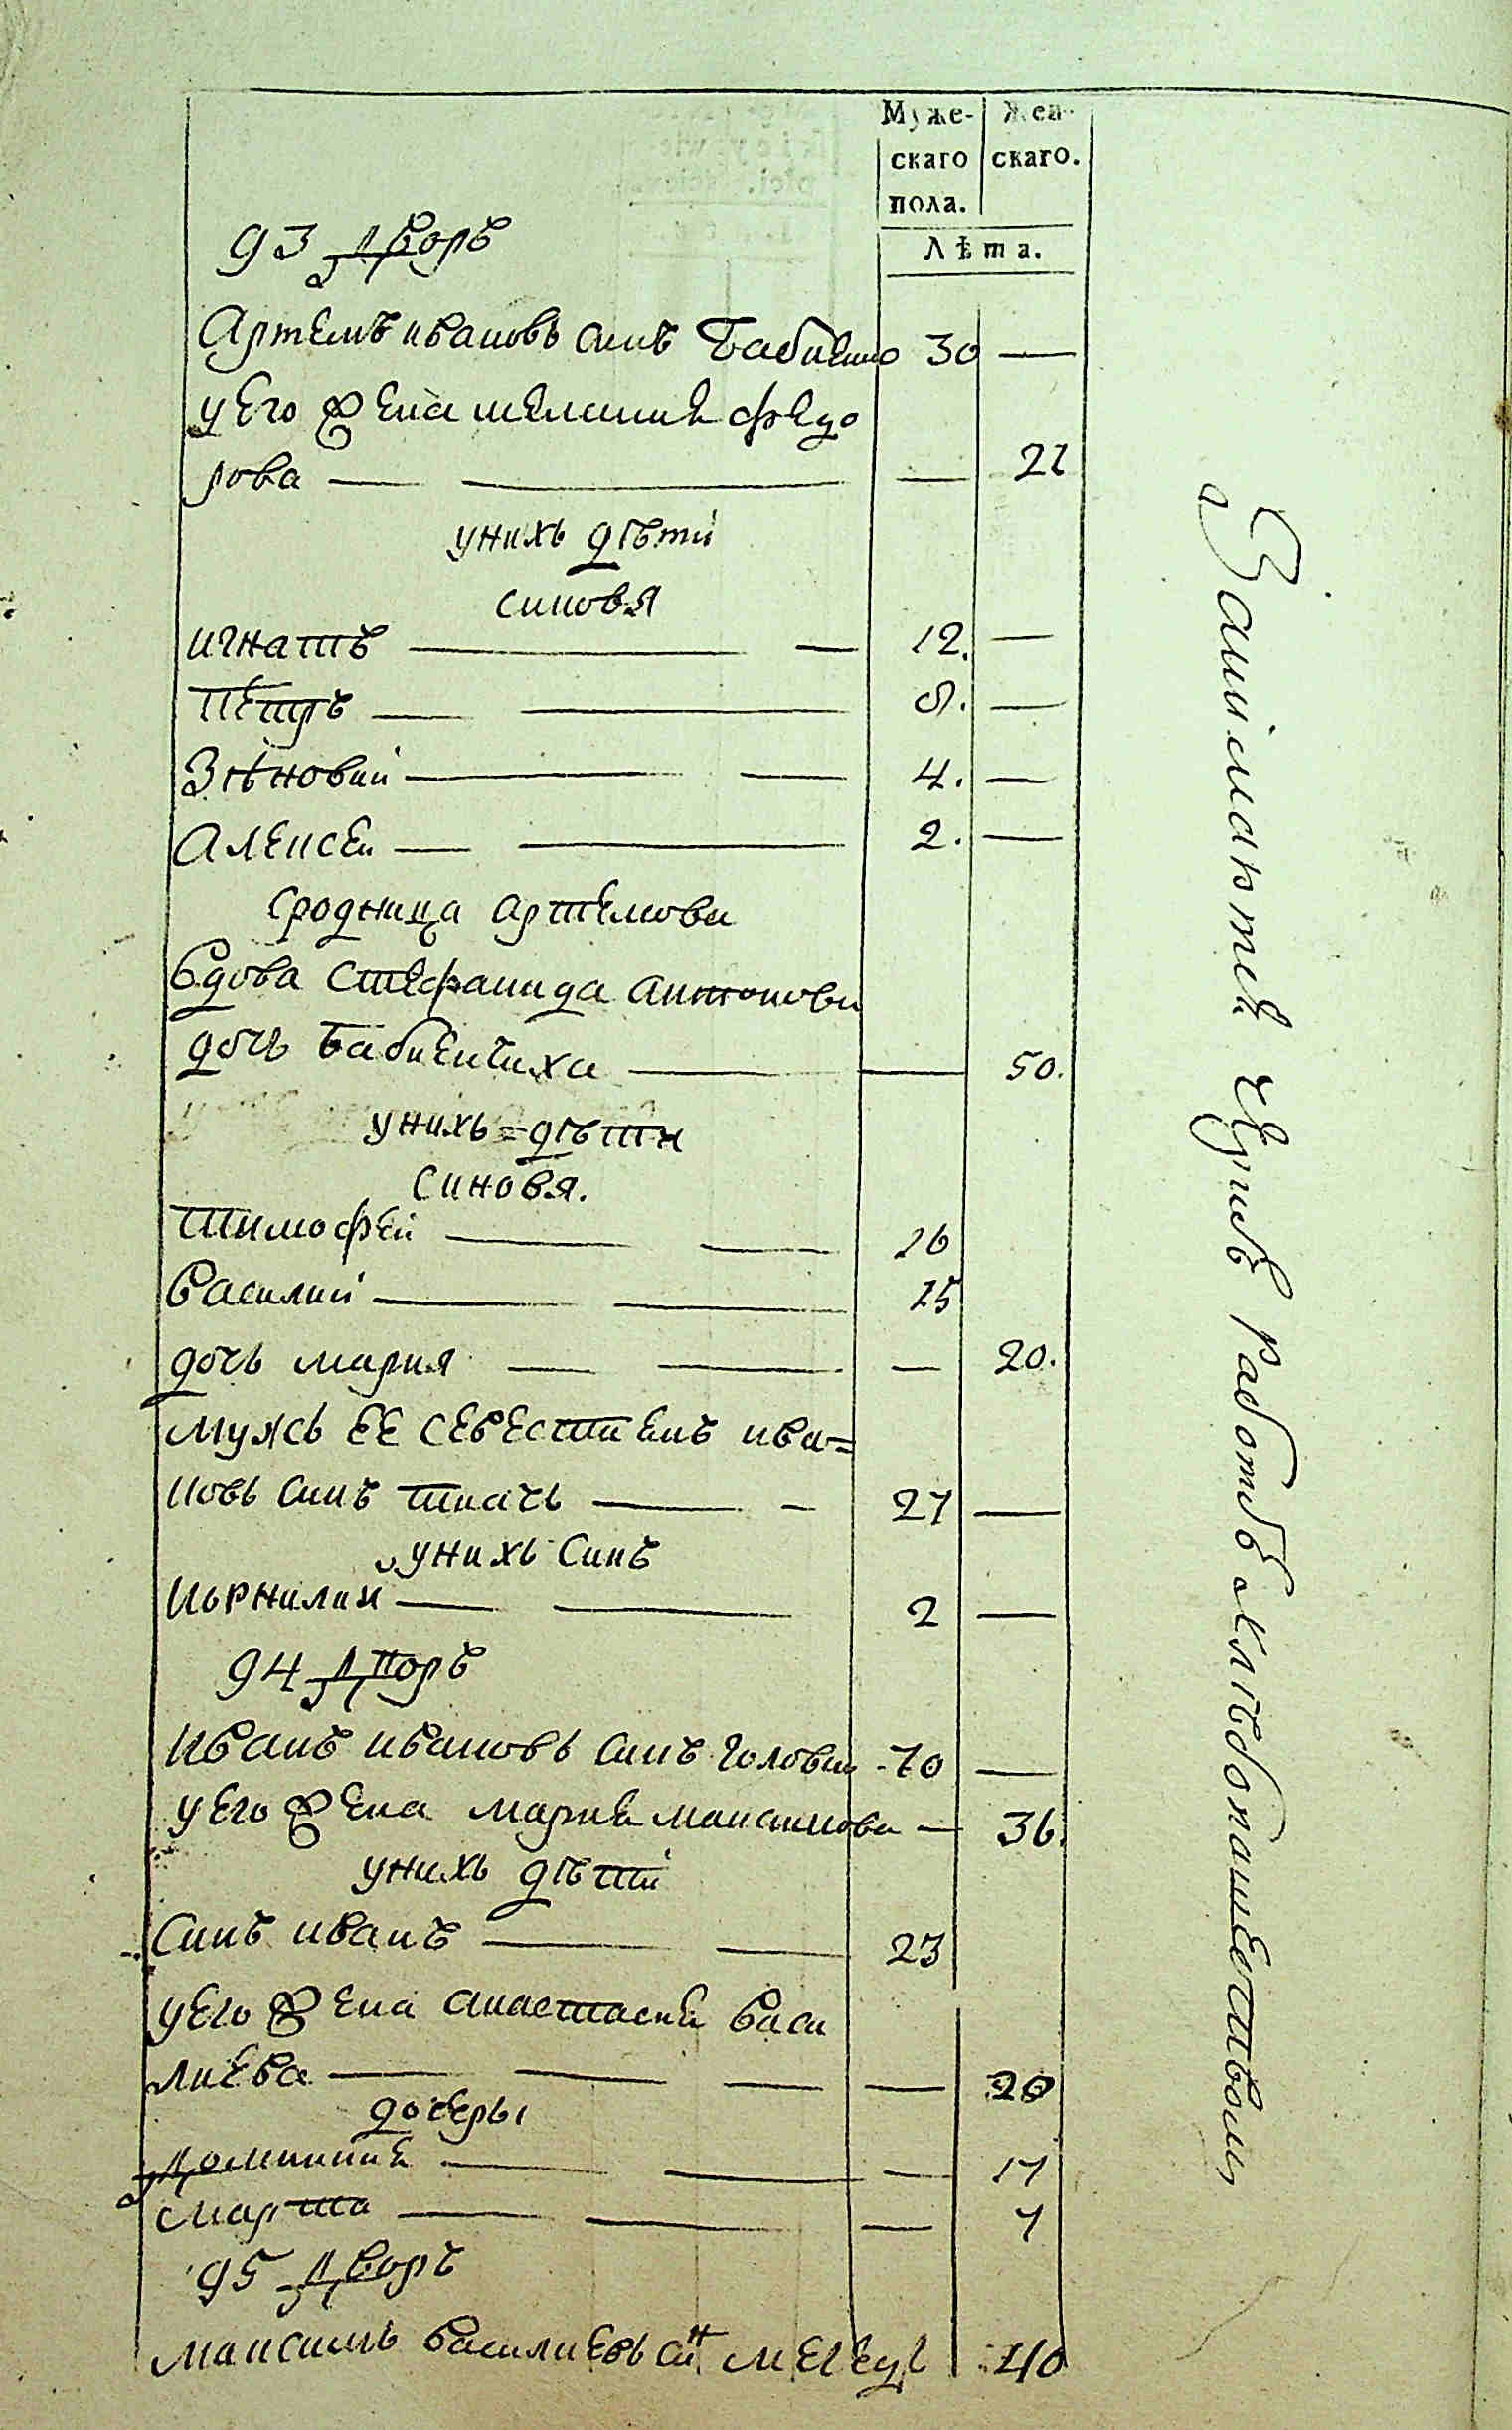 Муже- Жен-
скаго скаго.
пола.
Лѣта.
93 Дворъ
Артемъ ивановъ синъ Бабиенко 30 —
у Его жена мелания федо
рова — — — 22
унихъ дѣти
синовя
игнатъ — — 12. —
Петръ — — 8. —
Зѣновий — — 4. —
Алексеи — — 2. —
сродница артемова
Вдова Стефанида антонова
дочь Бабиенчиха — — 50.
унихъ=дѣти
синовя.
Тимофей — — 26
Василий — — 25
дочь мария — — — 20.
мужъ ЕЕ СЕвЕстиенъ ива=
новъ синъ ткачъ — - 27 —
унихъ Синъ
Корнилии — — 2 —
94 Дворъ
Иванъ ивановъ синъ головко - 70 —
у Его жена мария максимова — 36.
унихъ дѣти
Синъ иванъ — — 23
у Его жена анастасия васи
лиЕва — — — — 20
дочеры
Доминикия — — — 17
марта — — — 7
95 Дворъ
максимъ василиЕвъ синъ 40
Занимаются черинъ работъ хлѣбопашествомъ